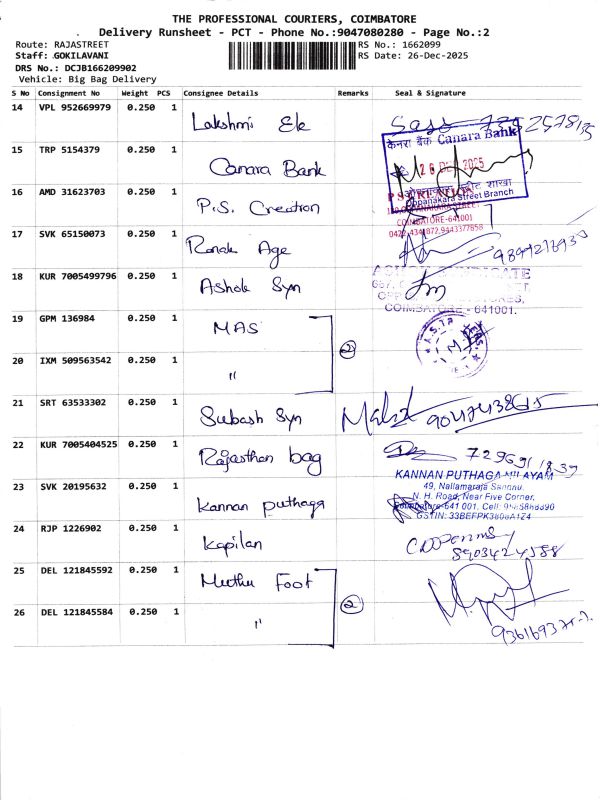 THE PROFESSIONAL COURIERS, COIMBATORE
Delivery Runsheet - PCT - Phone No.:9047080280 - Page No.:2
Route: RAJASTREET
RS No.: 1662099
Staff: GOKILAVANI
RS Date: 26-Dec-2025
DRS No.: DCJB166209902
Vehicle: Big Bag Delivery
S No Consignment No Weight PCS Consignee Details Remarks Seal & Signature
14 VPL 952669979 0.250 1 Lakshmi Ele
15 TRP 5154379 0.250 1 Canara Bank
केनरा बैंक Canara Bank
26 DEC 2025
Oppanakara Street Branch
16 AMD 31623703 0.250 1 P.S. Creation
COIMBATORE-641001
17 SVK 65150073 0.250 1 Ronak Age
18 KUR 7005499796 0.250 1 Ashok Syn
COIMBATORE - 641001.
19 GPM 136984 0.250 1 MAS
2
20 IXM 509563542 0.250 1 "
21 SRT 63533302 0.250 1 Subash Syn
22 KUR 7005404525 0.250 1 Rajasthan bag
23 SVK 20195632 0.250 1 Kannan puthaga
KANNAN PUTHAGA NILAYAM
49, Nallamaraja
N. H. Road, Near Five Corner,
24 RJP 1226902 0.250 1 Kapilan
8903424588
25 DEL 121845592 0.250 1 Muthu Foot
2
26 DEL 121845584 0.250 1 "